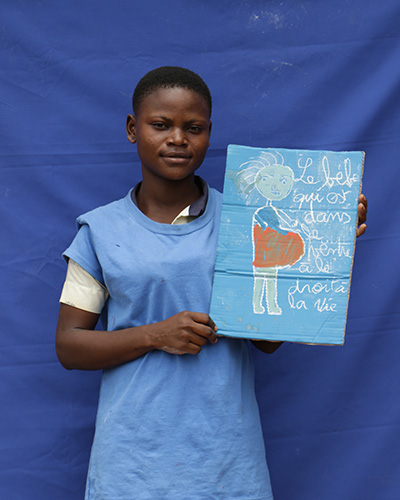 Le bébé
qui est
dans
le
ventre
à le
droit à
la vie